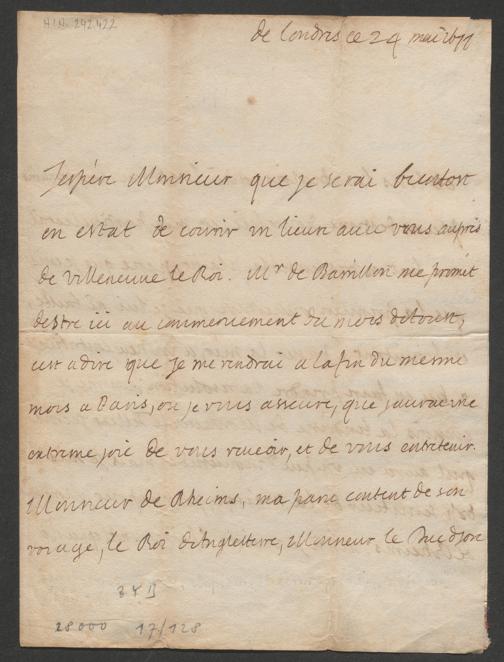 H.N. 242.422
de Londres ce 24 mai 1677
Jespére Monsieur que je serai bientost
en estat de courir un lieure auec vous aupres
de Villeneuue le Roi. Mr de Barrillon me promet
destre ici au commencement du mois d'Aoust,
cest a dire que je me rendrai a la fin du mesme
mois a Paris, ou je vous asseure, que jaurai une
extreme joie de vous reuoir, et de vous entretenir.
Monsieur de Rheims, ma paru content de son
voiage, le Roi d'Angleterre, Monsieur le Duc d'Iorc
34 D
28000 17/128